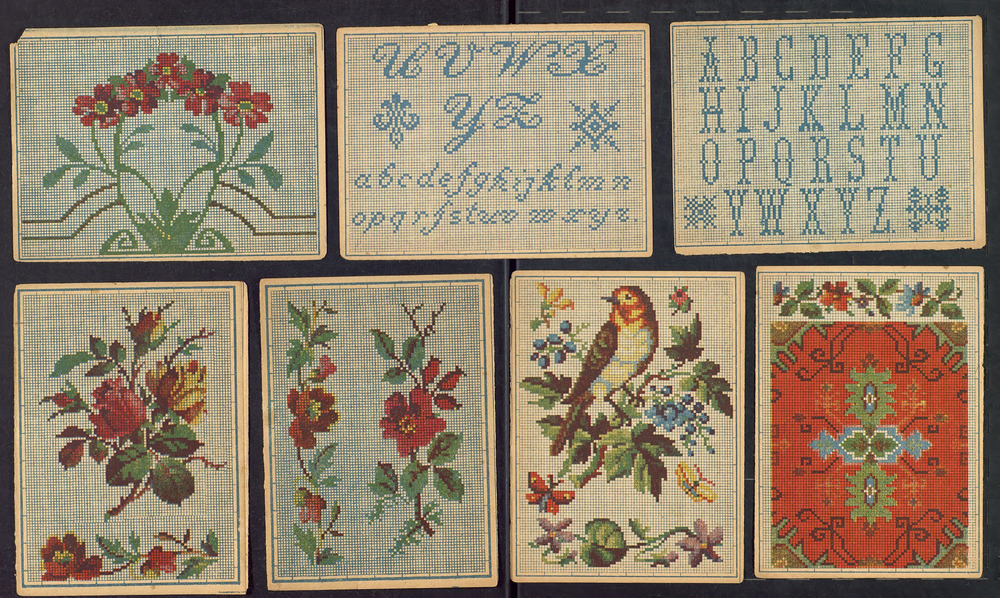 U V W X
Y Z
a b c d e f g h i j k l m n
o p q r ſ s t u v w x y z.
A B C D E F G
H I J K L M N
O P Q R S T U
V W X Y Z